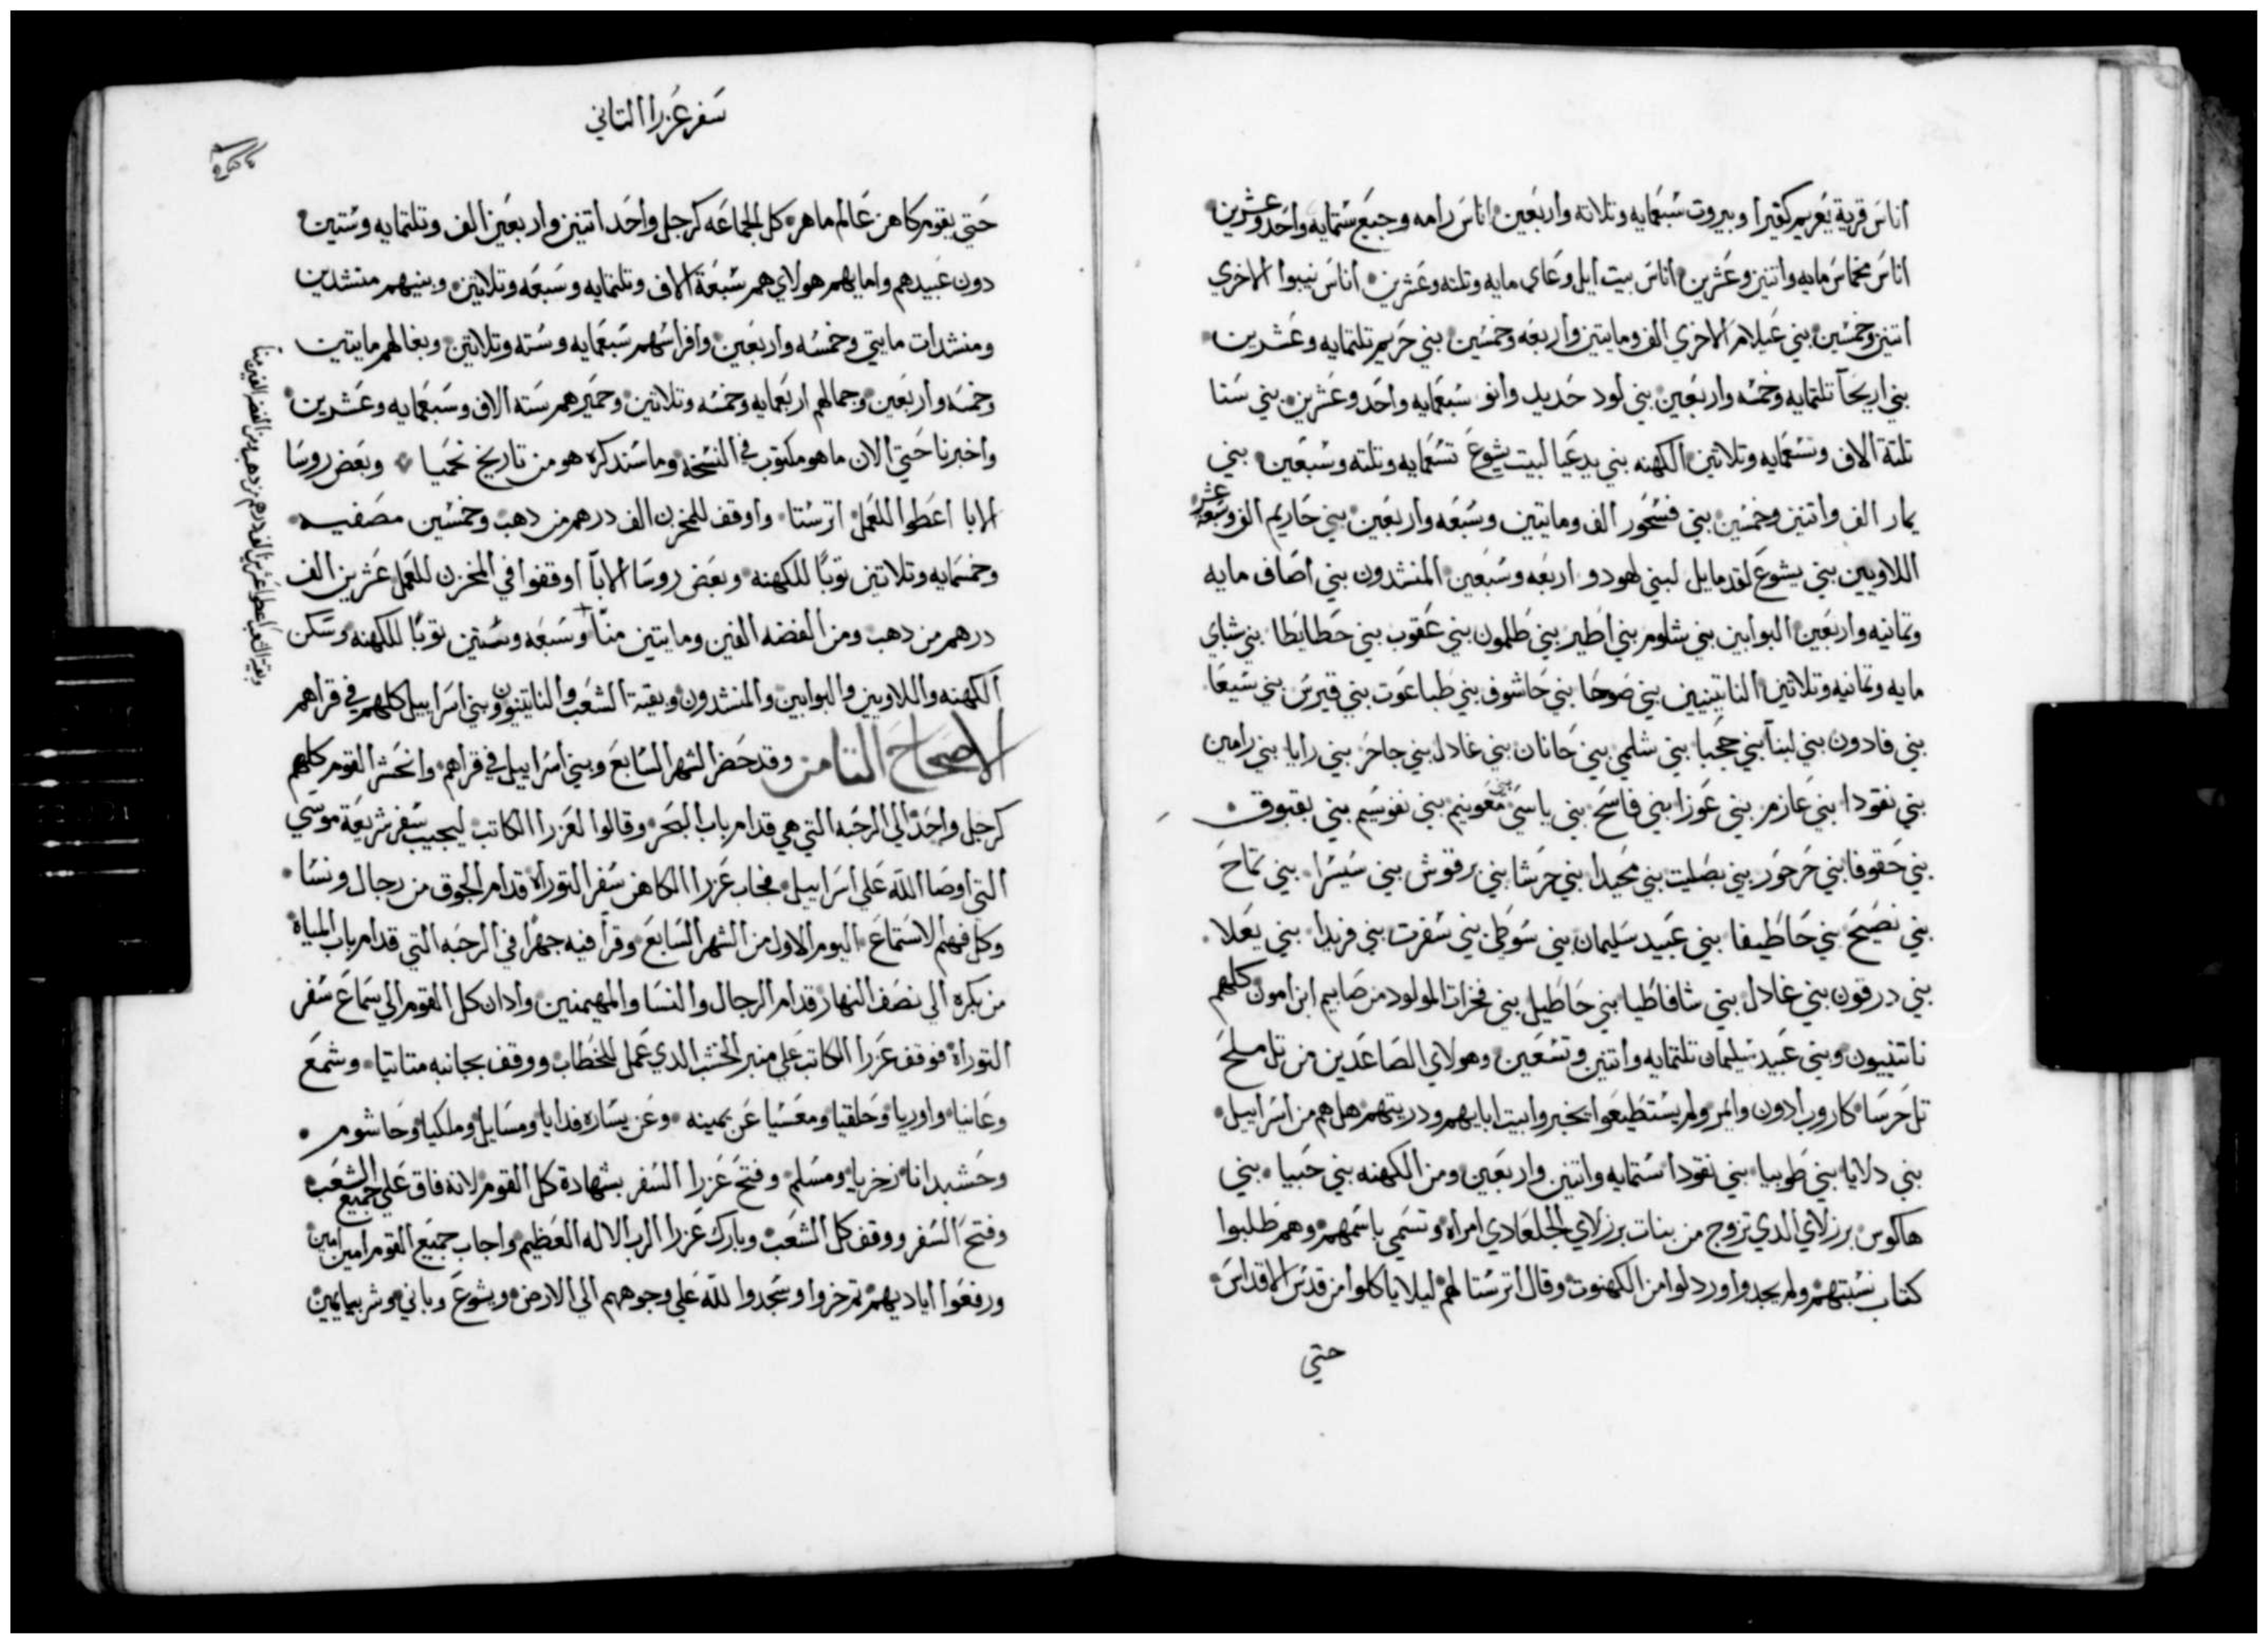 اناس قرية يغريم كفيرا وبيروت سبعمايه وتلاته واربعين اناس رامه وجبع ستمايه واحد وعشرين
اناس مخماس مايه واتنين وعشرين اناس بيت ايل وعاي مايه وتلته وعشرين اناس نيبوا الاخري
اتنين وخمسين بني عيلام الاخري الف ومايتين واربعه وخمسين بني حريم تلتمايه وعشرين
بني اريحا تلتمايه وخمسه واربعين بني لود حديد وانو سبعمايه واحد وعشرين بني سنا
تلتة الاف وتسعمايه وتلاتين الكهنه بني يدعيا لبيت يشوع تسعمايه وتلته وسبعين بني
يمار الف واتنين وخمسين بني فسحور الف ومايتين وسبعه واربعين بني حاريم الف وسبعة عشر
اللاويين بني يشوع لقدمايل لبني لهودو اربعه وسبعين المنشدون بني اصاف مايه
وتمانيه واربعين البوابين بني شلوم بني اطير بني طلمون بني عقوب بني حطايطا بني شباي
مايه وتمانيه وتلاتين الناتينيين بني صوحا بني حاشوف بني طباعوت بني قيرس بني سيعا
بني فادون بني لبنا بني حجبا بني شلمي بني حانان بني غادل بني جاحر بني رايا بني رامين
بني نقودا بني عازم بني عوزا بني فاسح بني باسي بني معونيم بني نفوسيم بني بقبوق
بني حقوفا بني حرحور بني بصليت بني محيدا بني حرشا بني برقوش بني سيسرا بني تماح
بني نصيح بني حاطيفا بني عبيد سليمان بني سوطي بني سفرت بني فريدا بني يعلا
بني درقون بني غادل بني شافاطيا بني حاطيل بني فخرات المولود من صابيم ابن امون كلهم
ناتنييون وبني عبيد سليمان تلتمايه واتنين وتسعين وهولاي الصاعدين من تل ملح
تل حرسا كاروب ادون وايمر ولم يستطيعوا يخبروا ببيت ابايهم ودريتهم هل هم من اسراييل
بني دلايا بني طوبيا بني نقودا ستمايه واتنين واربعين ومن الكهنه بني حبيا بني
هاكوس برزلاي الدي تزوج من بنات برزلاي الجلعادي امراه وتسمي باسمهم وهم طلبوا
كتاب نسبتهم ولم يجدوا وردلوا من الكهنوت وقال اترستا لهم ليلا ياكلوا من قدس الاقداس
حتي
سفر عزرا التاني
حتي يقوم كاهن عالم ماهر كل الجماعه كرجل واحد اتنين واربعين الف وتلتمايه وستين
دون عبيدهم وامايهم هولاي هم سبعة الاف وتلتمايه وسبعه وتلاتين وبينهم منشدين
ومنشدات مايتي وخمسه واربعين وافراسهم سبعمايه وسته وتلاتين وبغالهم مايتين
وخمسه واربعين وجمالهم اربعمايه وخمسه وتلاتين وحميرهم سته الاف وسبعمايه وعشرين
واخبرنا حتي الان ما هو مكتوب في النسخه وما سندكره هو من تاريخ نحميا وبعض روسا
الابا اعطوا للعمل اترستا واوقف للمخزن الف درهم من دهب وخمسين مصفيه
وخمسمايه وتلاتين توبا للكهنه وبعض روسا الابا اوقفوا في المخزن للعمل عشرين الف
درهم من دهب ومن الفضه الفين ومايتين منا وسبعه وستين توبا للكهنه وسكن
الكهنه واللاويين والبوابين والمنشدون وبقية الشعب والناتينيون وبني اسراييل كلهم في قراهم
الاصحاح التامن وقد حضر الشهر السابع وبني اسراييل في قراهم وانحشر القوم كلهم
كرجل واحد الي الرحبه التي هي قدام باب البحر وقالوا لعزرا الكاتب ليجيب سفر شريعة موسي
التي اوصا الله علي اسراييل فجاب عزرا الكاهن سفر التوراه قدام الجوق من رجال ونسا
وكل فهم الاستماع اليوم الاول من الشهر السابع وقرا فيه جهرا في الرحبه التي قدام باب المياة
من بكره الي نصف النهار قدام الرجال والنسا والمهيمنين وادان كل القوم الي سماع سفر
التوراة فوقف عزرا الكاتب علي منبر الخشب الدي عمل للخطاب ووقف بجانبه متاتيا وشمع
وعانيا واوريا وحلقيا ومعسيا عن يمينه وعن يساره فدايا ومسايل وملكيا وحاشوم
وحشبدانا زخريا ومسلم وفتح عزرا السفر بشهادة كل القوم لانه فاق علي جميع الشعب
وفتح السفر ووقف كل الشعب وبارك عزرا الرب الاله العظيم واجاب جميع القوم امين امين
ورفعوا اياديهم تم خروا وسجدوا لله علي وجوههم الي الارض ويشوع وباني وشربيا يمين
وبقية الشعب اعطوا عشرين الف درهم من دهب ومن الفضه الفين منا